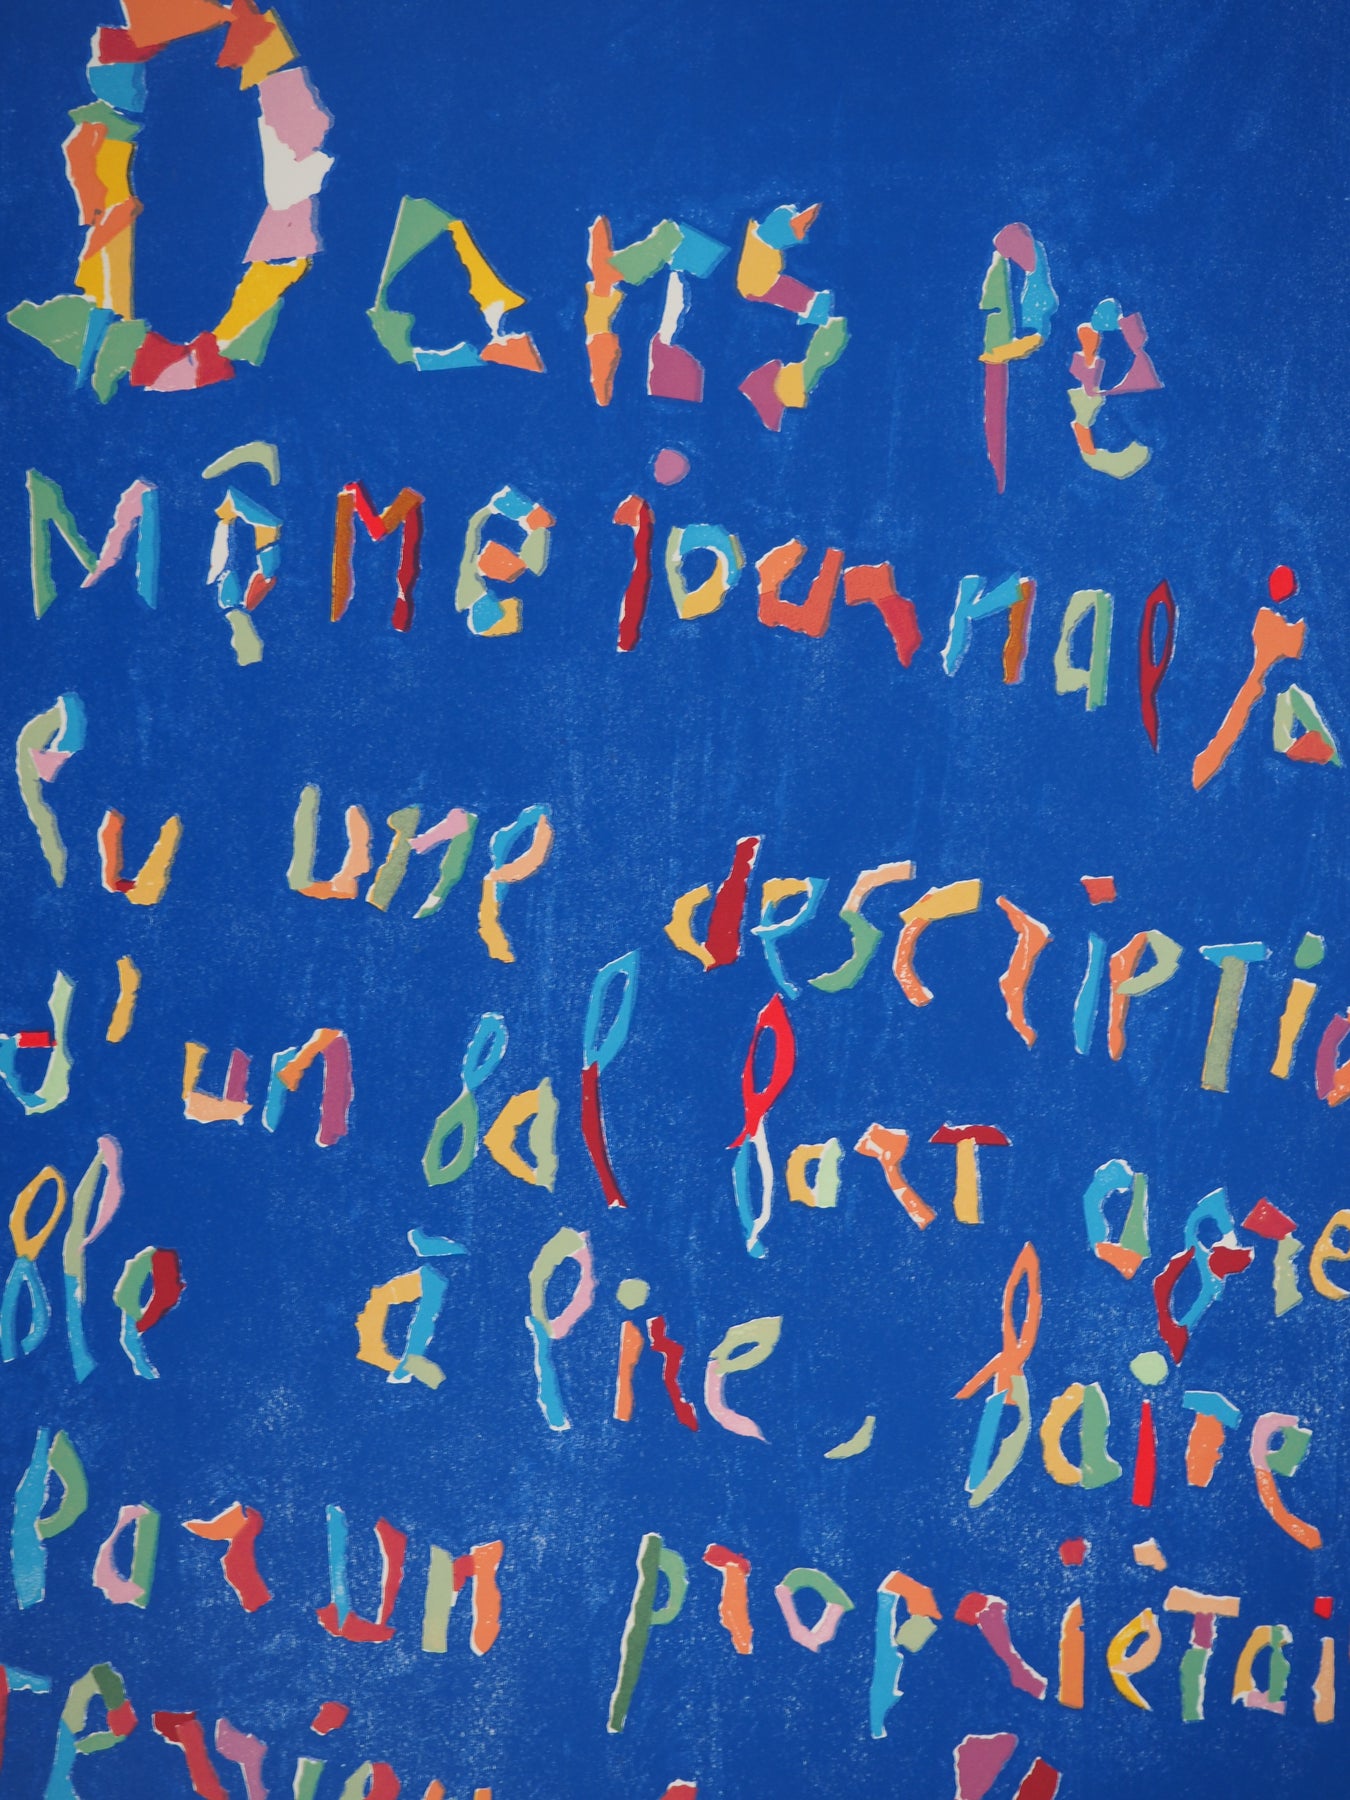 Dans le
même journal ja
lu une descriptio
d'un bal fort agré
ble à lire, faite
par un propriétai